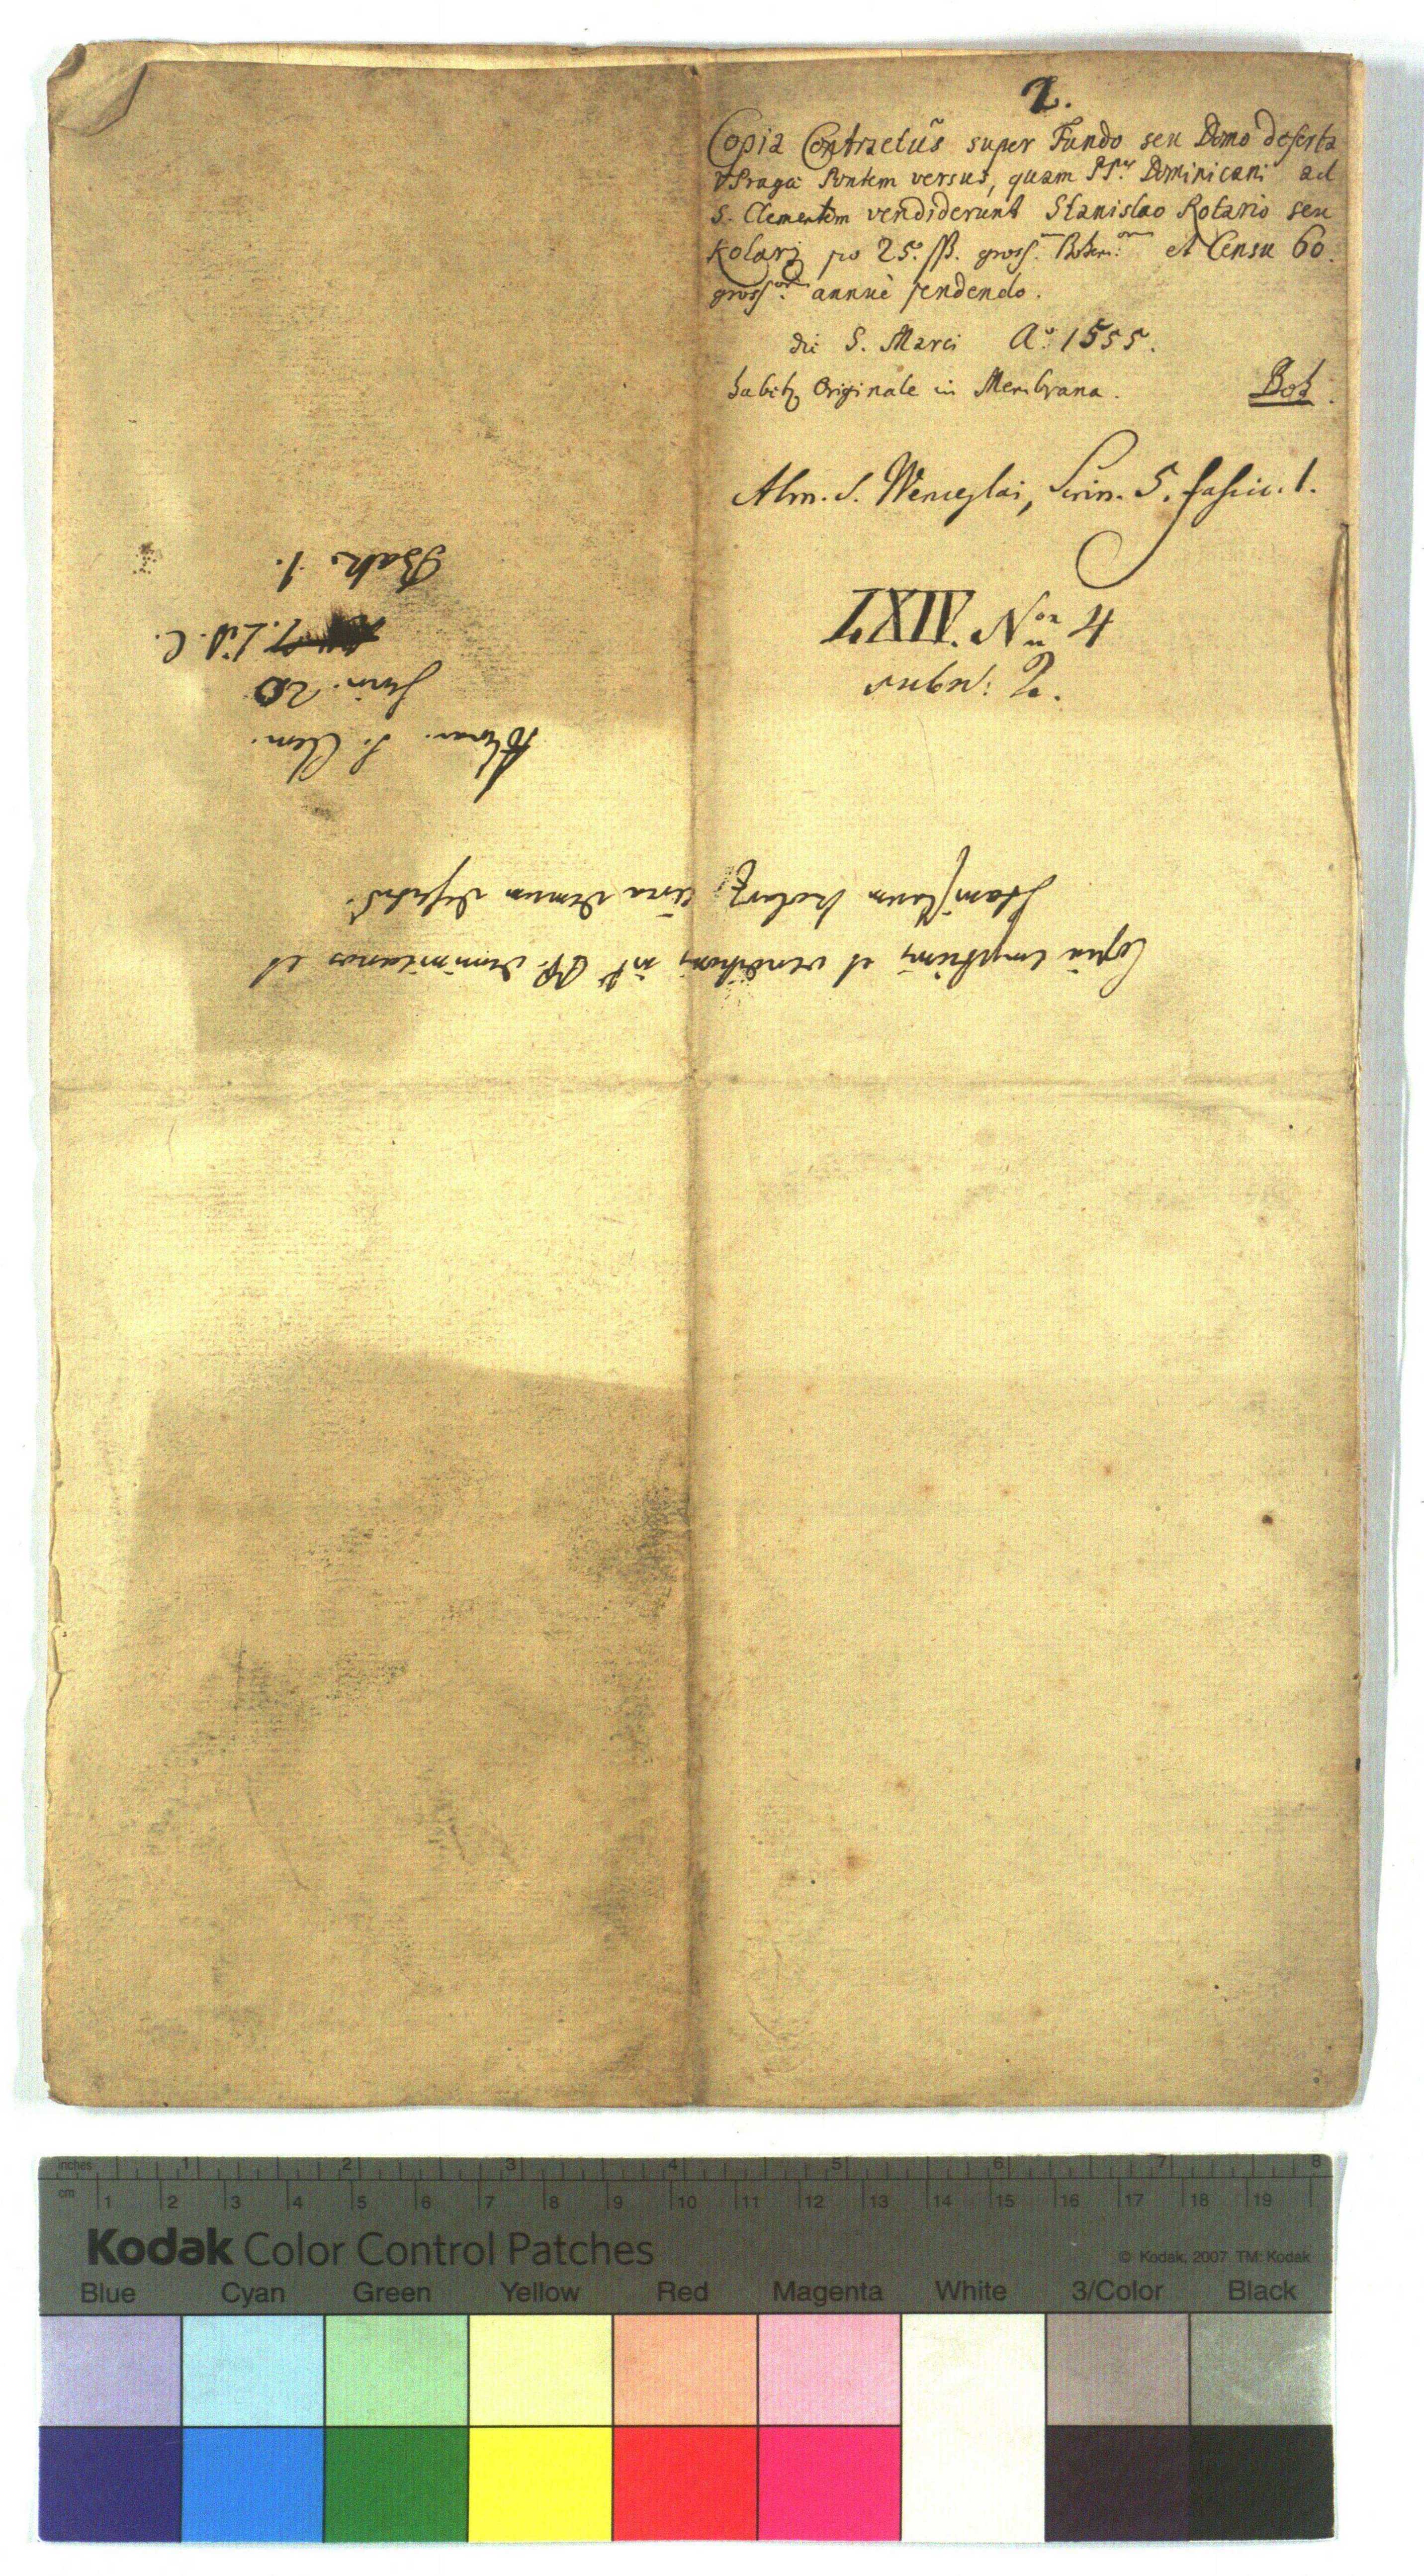 2.
Copia Contractûs super Fundo seu Domo deserta
Pragæ Pontem versus, quam PP. Dominicani ad
S. Clementem vendiderunt Stanislao Rotario seu
Kolarz pro 25. ßß. gross. Bohem. et Censu 60.
gross. annuè pendendo.
die S. Marci Aº 1555.
habetq Originale in Membrana. Boh.
Alm. S. Wenceslai, Scrin. 5. fascic. 1.
LXIV. Nrº 4
subn: 2.
Copia emptionis et venditionis int. PP. Dominicanos et
Stanislaum Kolarz, circa domum desertã.
Almar. S. Clem.
Scrin. 20
7. Lit. C.
1.
inches 1 2 3 4 5 6 7 8
cm 1 2 3 4 5 6 7 8 9 10 11 12 13 14 15 16 17 18 19
Kodak Color Control Patches
© Kodak, 2007 TM: Kodak
Blue Cyan Green Yellow Red Magenta White 3/Color Black